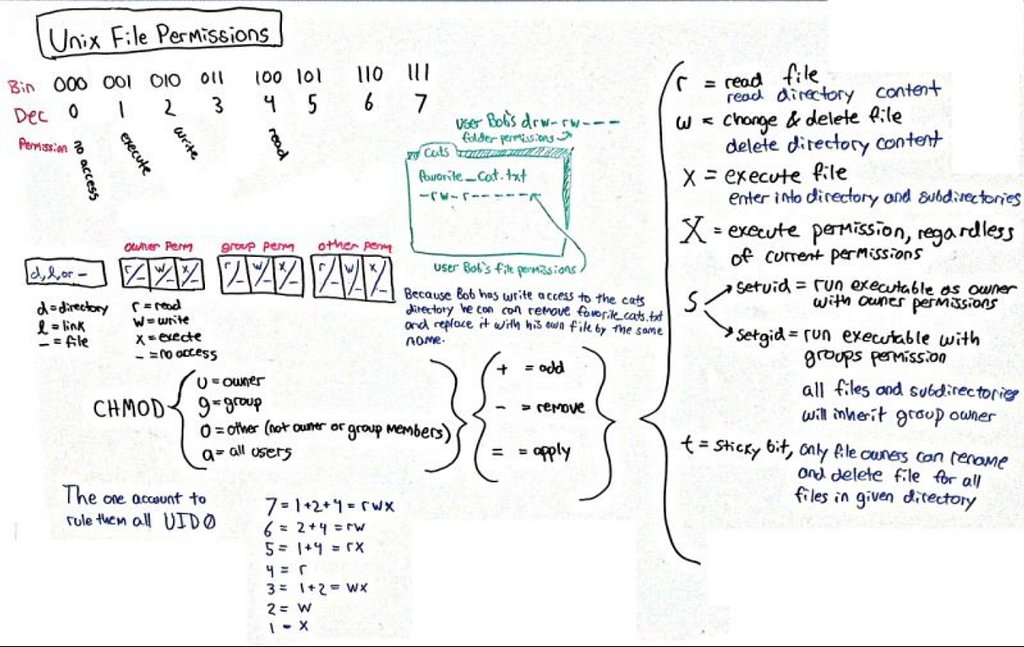 Unix File Permissions
Bin 000 001 010 011 100 101 110 111
Dec 0 1 2 3 4 5 6 7
Permission no access execute write read
user Bob's drw-rw----
folder permissions
cats
favorite_cat.txt
-rw-r------
user Bob's file permissions
Because Bob has write access to the cats
directory he can can remove favorite_cats.txt
and replace it with his own file by the same
name.
owner perm group perm other perm
d,l,or - r/- w/- x/- r/- w/- x/- r/- w/- x/-
d = directory
l = link
- = file
r = read
w = write
x = execte
- = no access
CHMOD
u = owner
g = group
o = other (not owner or group members)
a = all users
+ = add
- = remove
= = apply
r = read file
read directory content
w = change & delete file
delete directory content
x = execute file
enter into directory and subdirectories
X = execute permission, regardless
of current permissions
S
setuid = run executable as owner
with owner permissions
setgid = run executable with
groups permission
all files and subdirectories
will inherit group owner
t = sticky bit, only file owners can rename
and delete file for all
files in given directory
The one account to
rule them all UID0
7 = 1+2+4 = rwx
6 = 2+4 = rw
5 = 1+4 = rx
4 = r
3 = 1+2 = wx
2 = w
1 - x